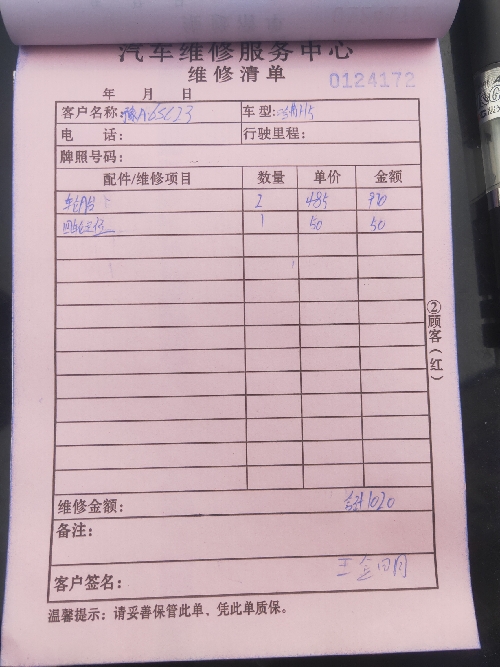 汽车维修服务中心
维修清单
0124172
年 月 日
客户名称: 车型: 哈弗H5
电 话: 行驶里程:
牌照号码:
配件/维修项目 数量 单价 金额
轮胎 2 485 970
四轮定位 1 50 50
②顾客(红)
维修金额: 合计1020
备注:
客户签名:
温馨提示:请妥善保管此单、凭此单质保。